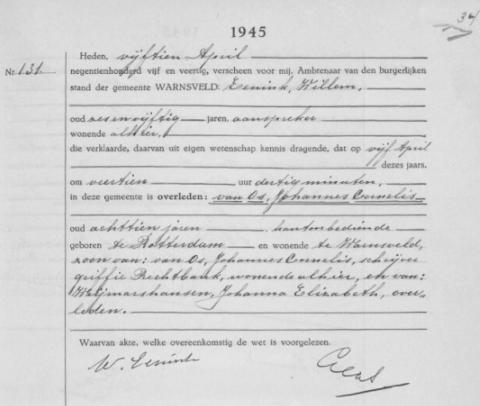 34
1945
Heden, vijftien April
Nr. 131. negentienhonderd vijf en veertig, verscheen voor mij, Ambtenaar van den burgerlijken
stand der gemeente WARNSVELD: Eenink, Willem,
oud zesenvijftig jaren, aanspreker
wonende alhier,
die verklaarde, daarvan uit eigen wetenschap kennis dragende, dat op vijf April
dezes jaars,
om veertien uur dertig minuten,
in deze gemeente is overleden: van Os, Johannes Cornelis
oud achttien jaren kantoorbediende
geboren te Rotterdam en wonende te Warnsveld,
zoon van: van Os, Johannes Cornelis, schrijver
griffie Rechtbank, wonende alhier, en van:
Weijmarshausen, Johanna Elizabeth, over-
leden.
Waarvan akte, welke overeenkomstig de wet is voorgelezen.
W. Eenink